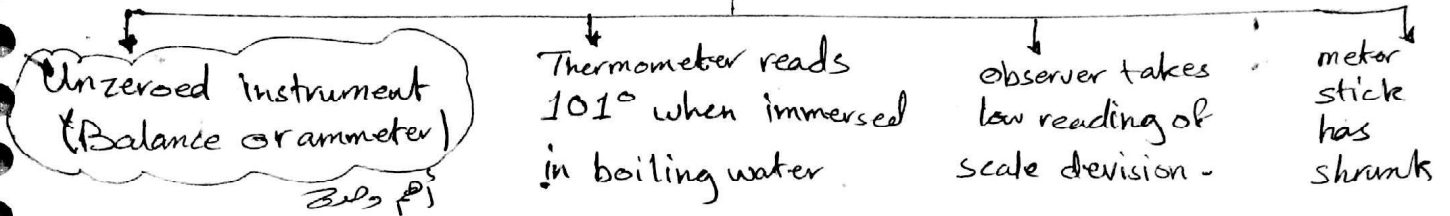 Unzeroed instrument
(Balance or ammeter)
أهم واحد
Thermometer reads
101° when immersed
in boiling water
observer takes
low reading of
scale devision -
meter
stick
has
shrunk